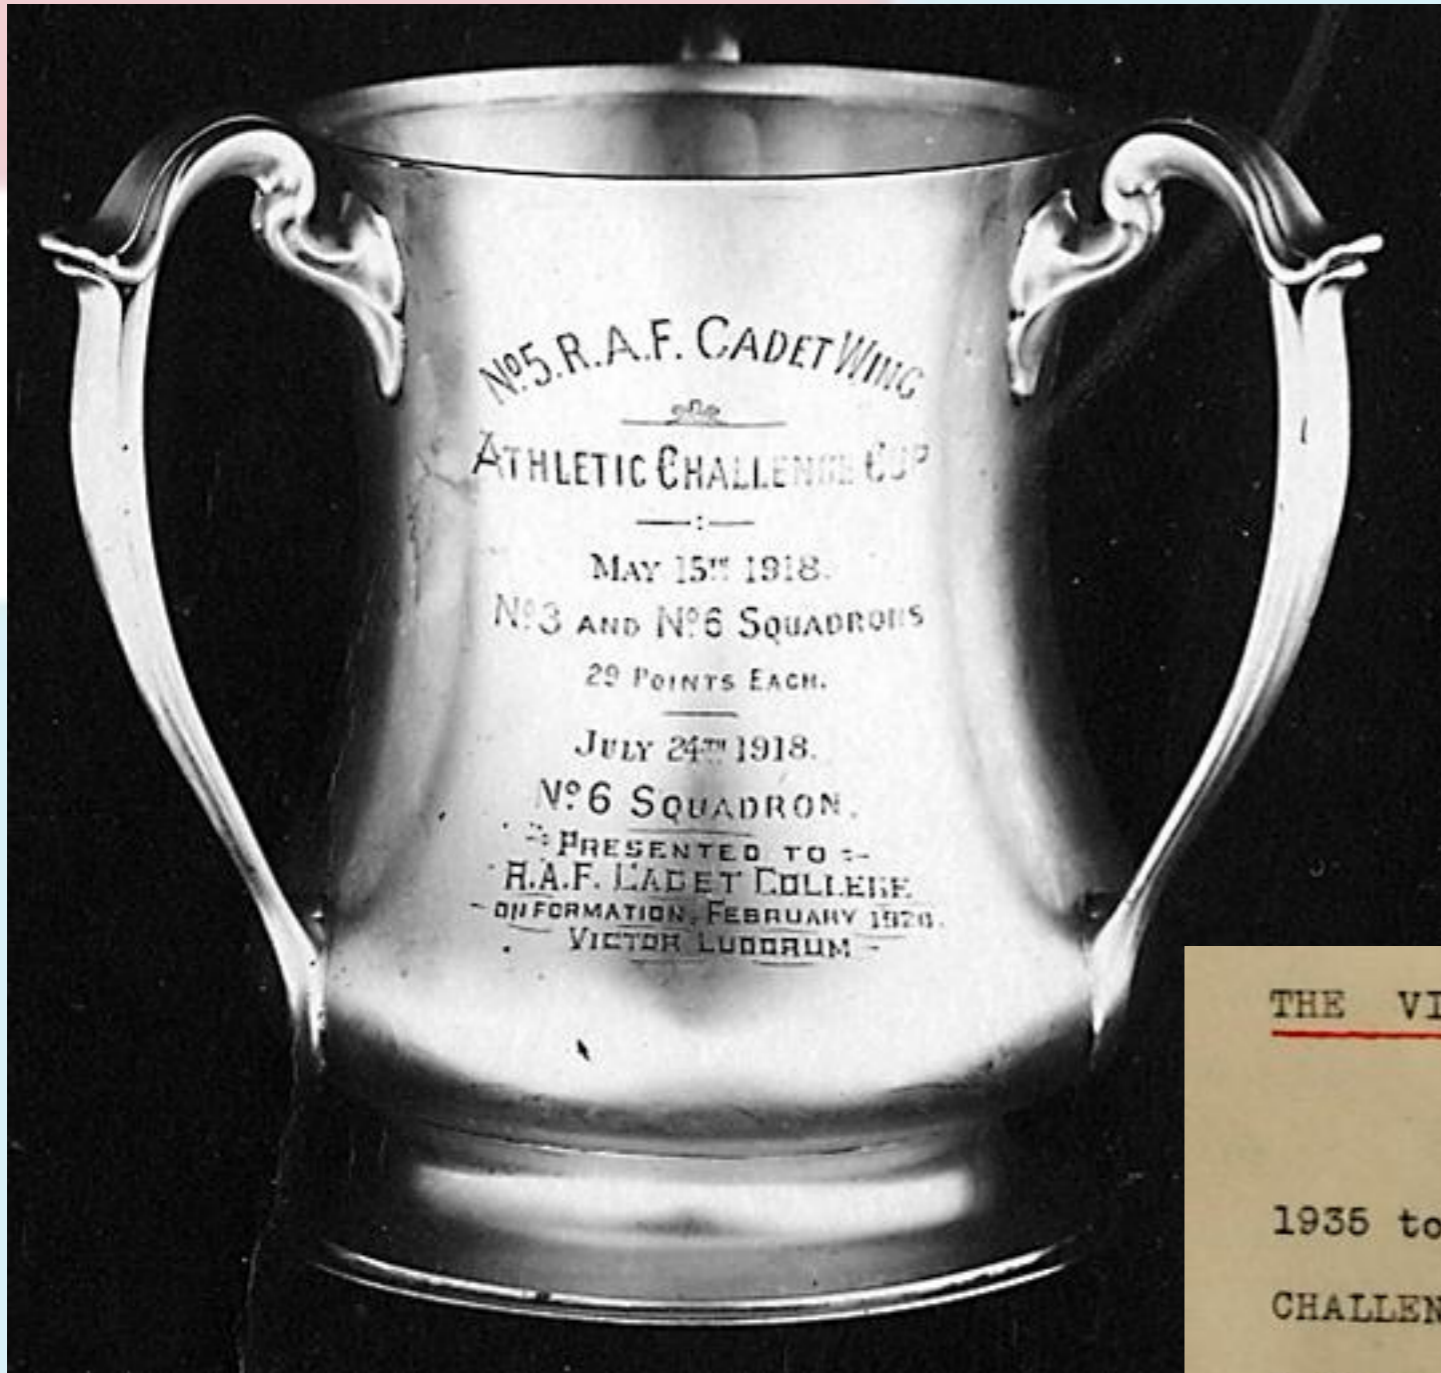 Nº5.R.A.F. CADET WING
ATHLETIC CHALLENGE CUP
MAY 15TH 1918.
Nº3 AND Nº6 SQUADRONS
29 POINTS EACH.
JULY 24TH 1918.
Nº6 SQUADRON.
PRESENTED TO
R.A.F. CADET COLLEGE
ON FORMATION, FEBRUARY 1920.
VICTOR LUDORUM
THE VI
1935 to
CHALLEN